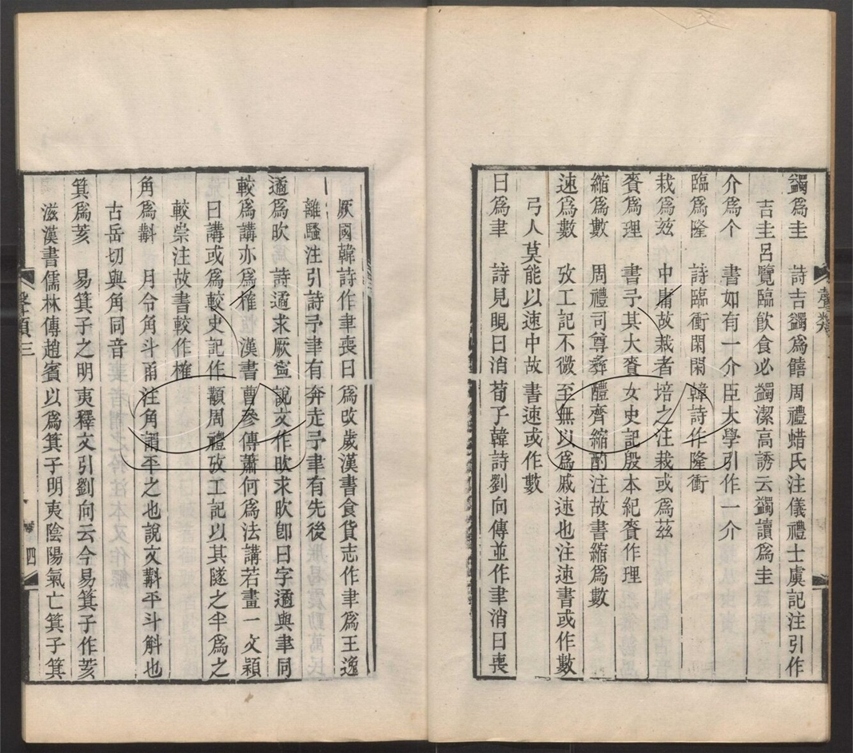 蠲爲圭　詩吉蠲爲饎周禮蜡氏注儀禮士虞記注引作
吉圭呂覽臨飲食必蠲潔高誘云蠲讀爲圭
介爲个　書如有一介臣大學引作一介
臨爲隆　詩臨衝閑閑韓詩作隆衝
栽爲兹　中庸故栽者培之注栽或爲茲
賚爲理　書予其大賚女史記殷本紀賚作理
縮爲數　周禮司尊彝醴齊縮酌注故書縮爲數
速爲數　攷工記不微至無以爲戚速也注速書或作數
弓人莫能以速中故書速或作數
曰爲聿　詩見晛曰消荀子韓詩劉向傳並作聿消曰喪
厥國韓詩作聿喪曰爲改歲漢書食貨志作聿爲王逸
離騷注引詩予聿有奔走予聿有先後
遹爲欥　詩遹求厥寧說文作欥求欥卽曰字遹與聿同
較爲講亦爲榷　漢書曹參傳蕭何爲法講若畫一文穎
曰講或爲較史記作顜周禮攷工記以其隧之半爲之
較崇注故書較作榷
角爲斠　月令角斗甬注角謂平之也說文斠平斗斛也
古岳切與角同音
箕爲荄　易箕子之明夷釋文引劉向云今易箕子作荄
滋漢書儒林傳趙賓以爲箕子明夷陰陽氣亡箕子箕
聲類三
四
聲類